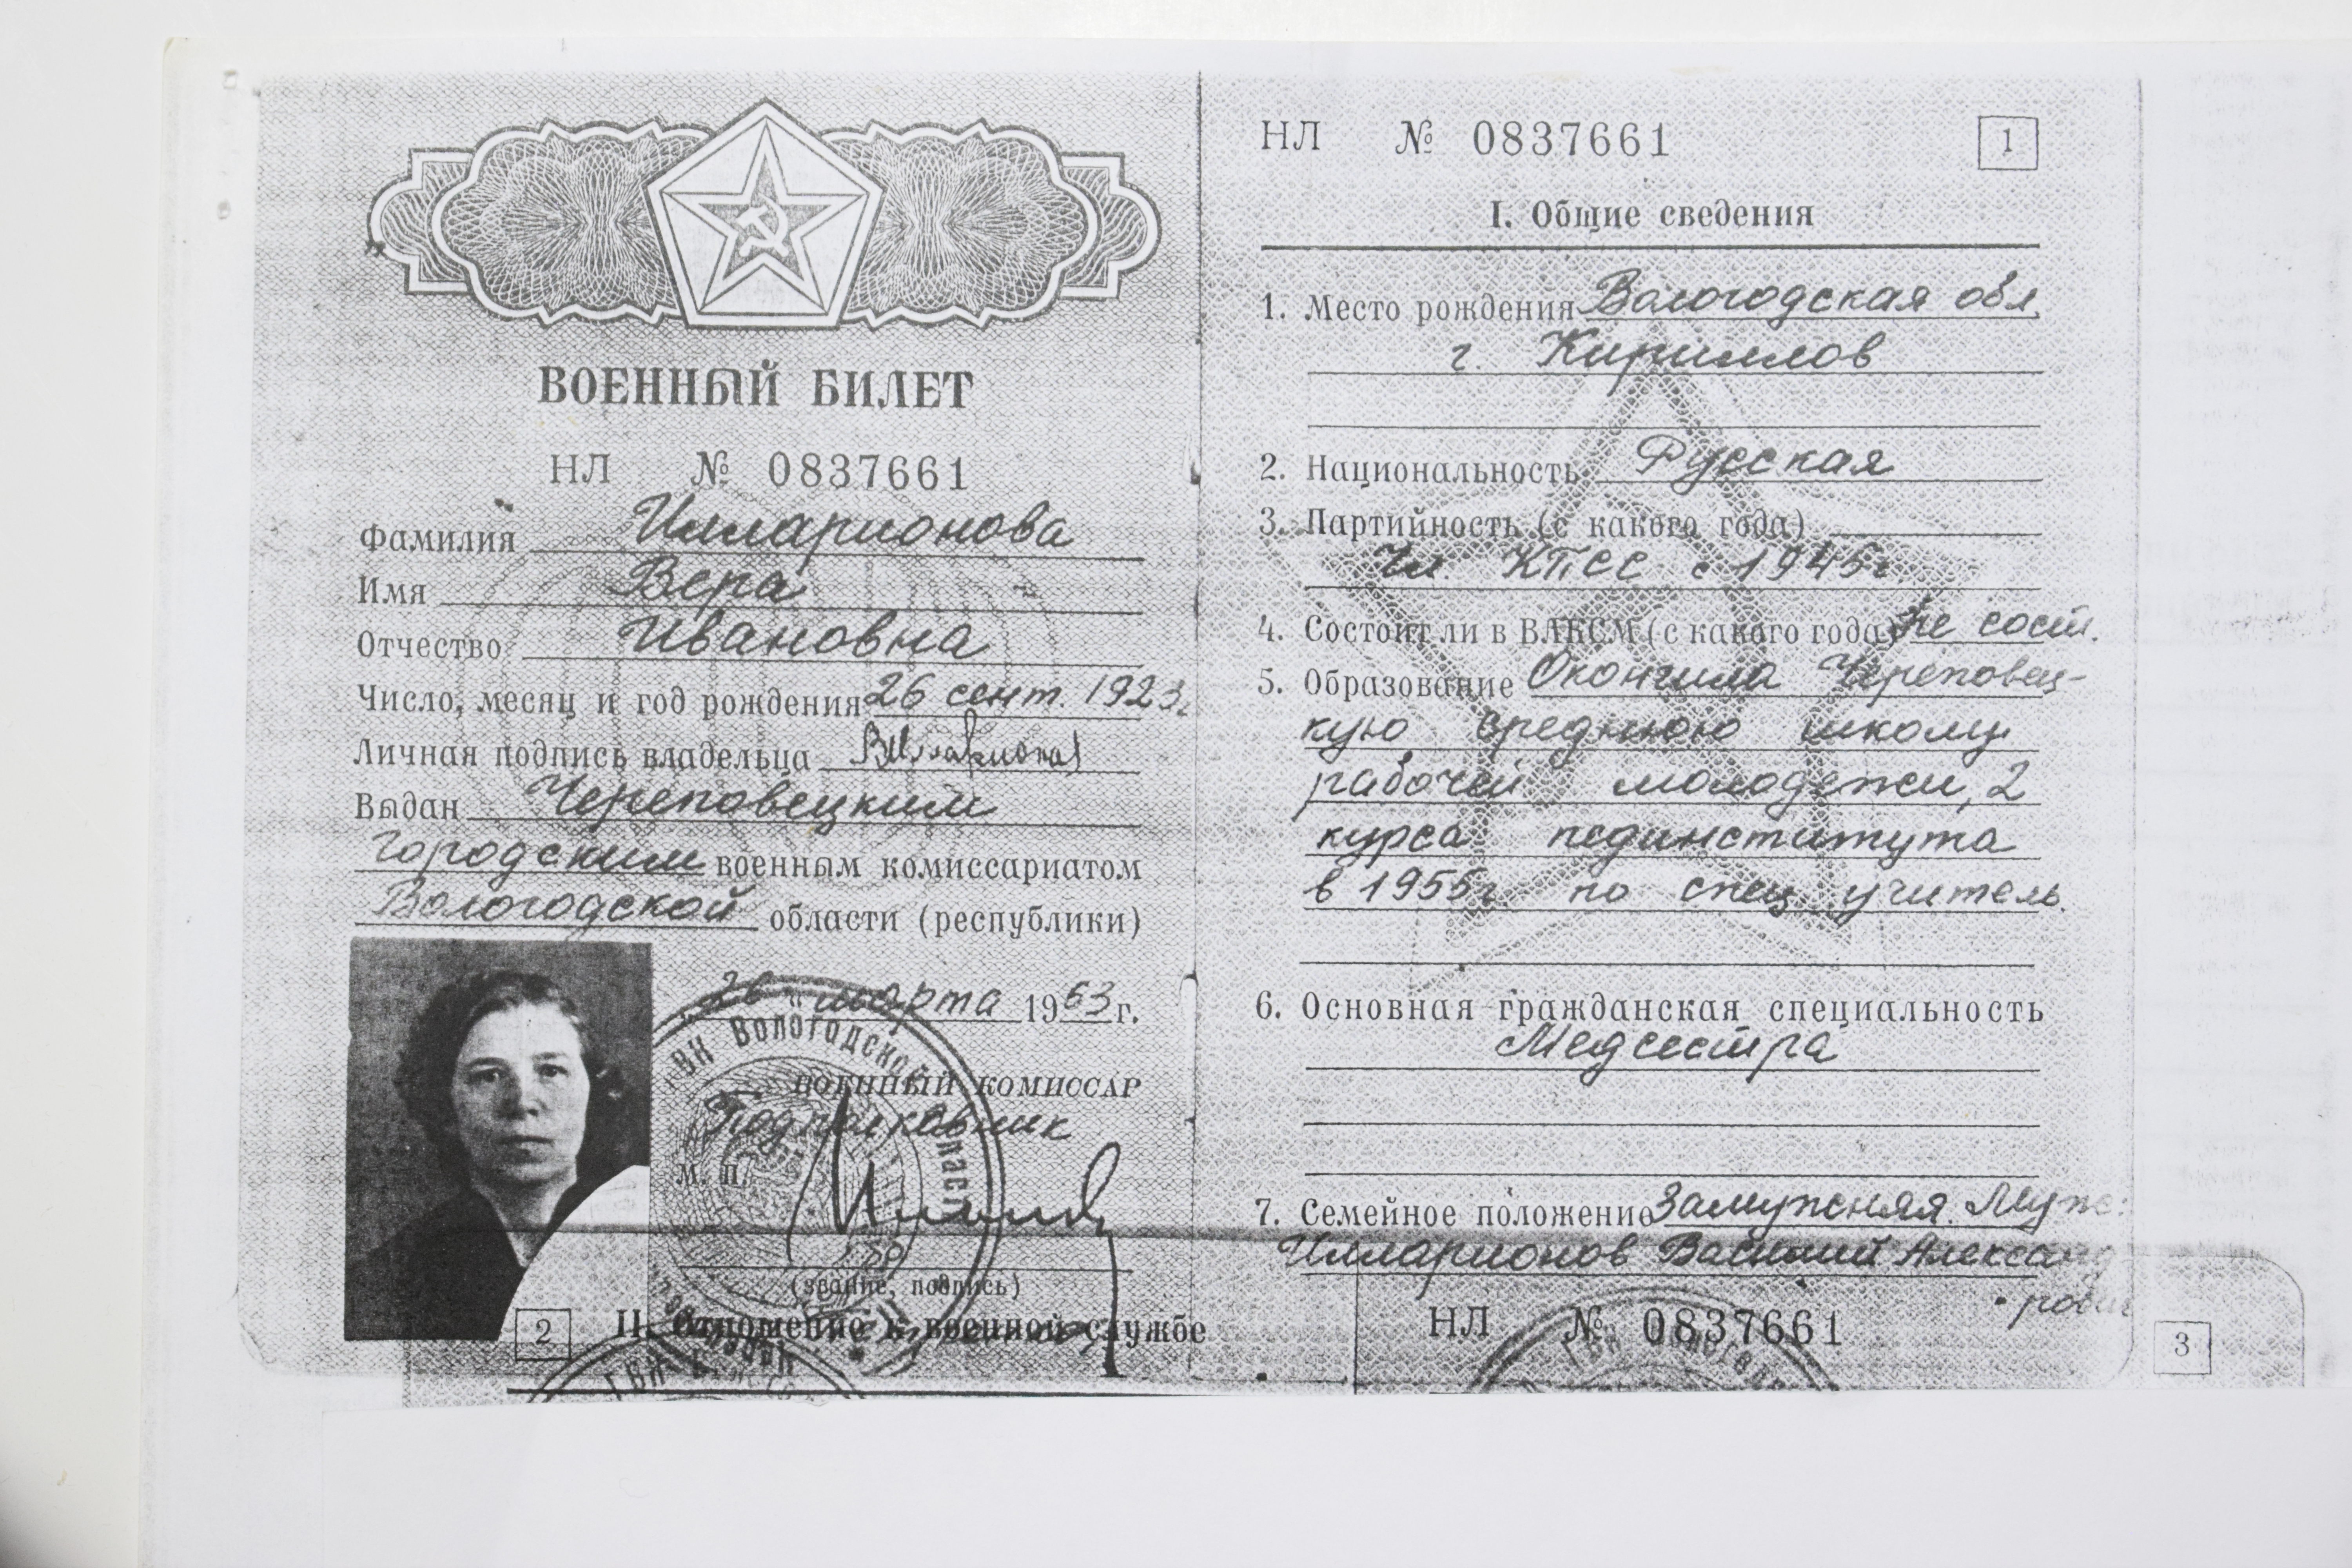 ВОЕННЫЙ БИЛЕТ
НЛ № 0837661
Фамилия Илларионова
Имя Вера
Отчество Ивановна
Число, месяц и год рождения 26 сент. 1923г.
Личная подпись владельца ВИлларионова
Выдан Череповецким
Городским военным комиссариатом
Вологодской области (республики)
26 " марта 1963 г.
ГВК Вологодской
ВОЕННЫЙ КОМИССАР
Подполковник
М. П.
(звание, подпись)
2 II. Отношение к военной службе
ГВК
НЛ № 0837661 1
I. Общие сведения
1. Место рождения Вологодская обл.
г. Кириллов
2. Национальность Русская
3. Партийность (с какого года)
Чл. КПСС с 1945г.
4. Состоит ли в ВЛКСМ (с какого года) Не сост.
5. Образование Окончила Череповец-
кую среднюю школу
рабочей молодежи, 2
курса пединститута
в 1955г по спец учитель.
6. Основная гражданская специальность
Медсестра
7. Семейное положение Замужняя. Муж:
Илларионов Василий Александ
рович
НЛ № 0837661
3